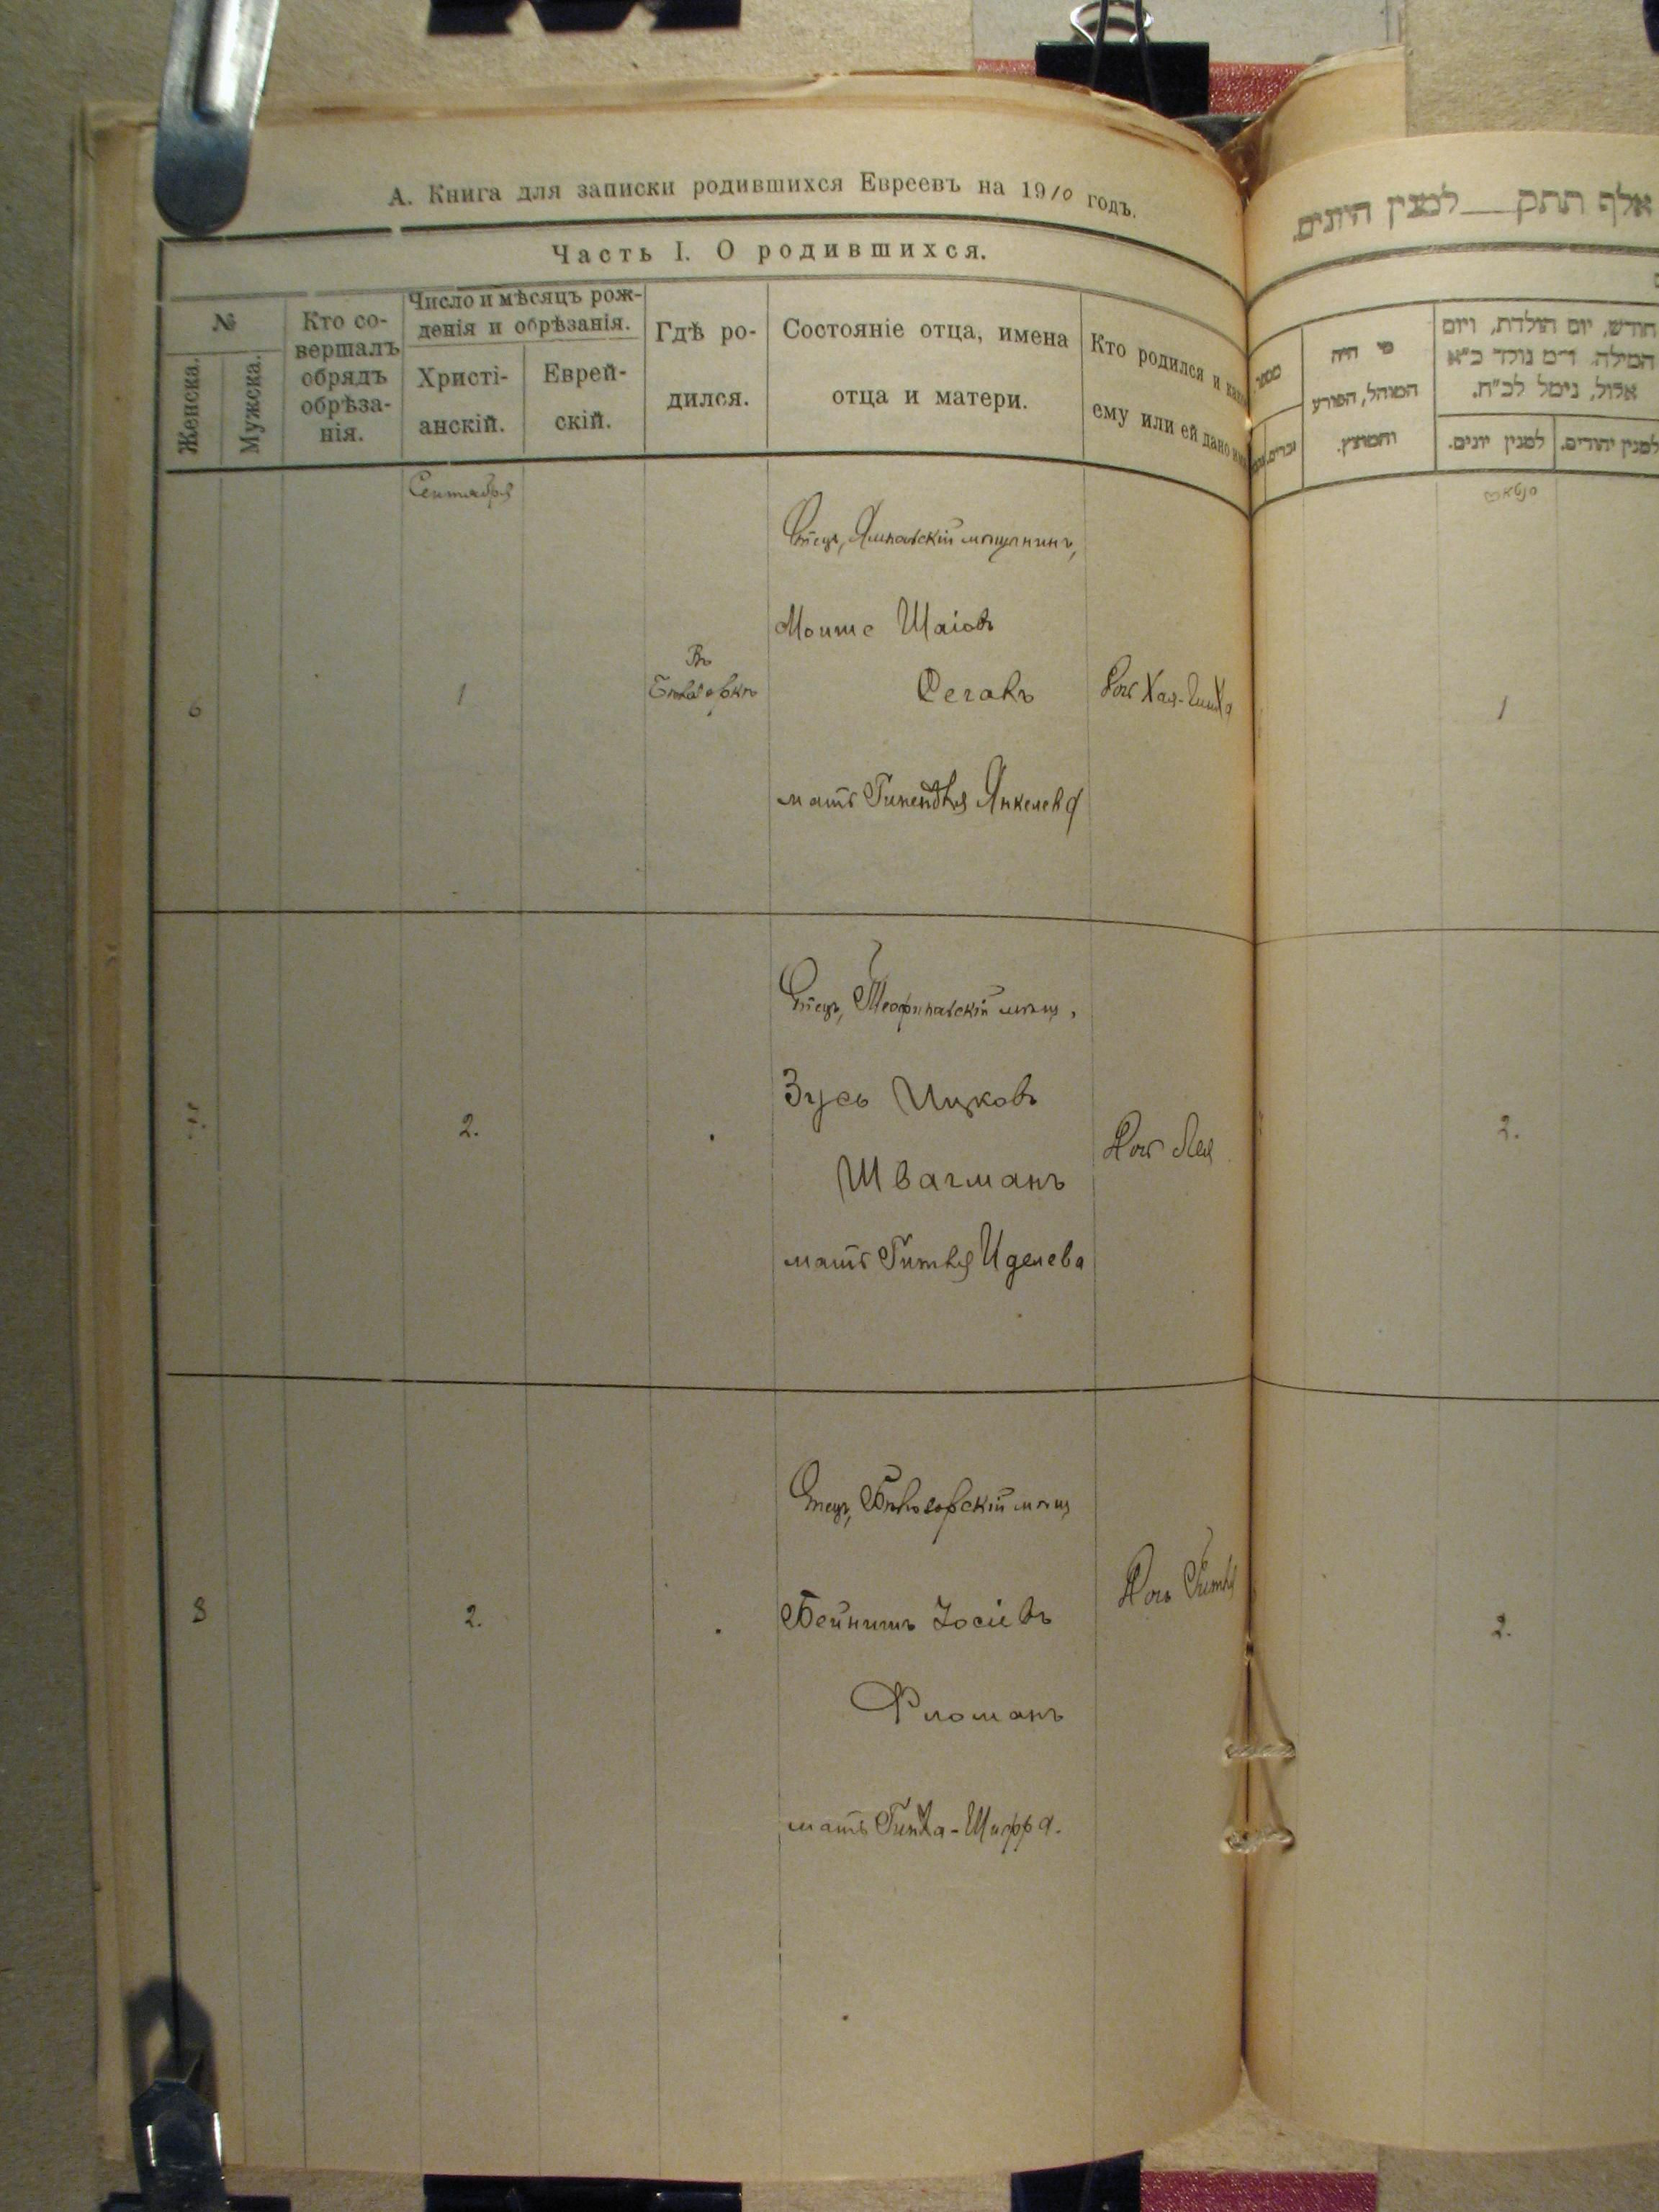 А. Книга для записки родившихся Евреевъ на 1910 годъ.
Часть I. О родившихся.
№
Женска.
Мужска.
Кто со-
вершалъ
обрядъ
обрѣза-
нія.
Число и мѣсяцъ рож-
денія и обрѣзанія.
Христі-
анскій.
Еврей-
скій.
Гдѣ ро-
дился.
Состояніе отца, имена
отца и матери.
Кто родился и како
ему или ей дано имя
Сентября
6
1
Въ
Отецъ, мѣщанинъ,
Мошше Шаіовъ
Сегалъ
мать Гинендля Янкелева
Дочь Хая-
2.
Отецъ, Теофипольскій мѣщ.
Зусь Ицковъ
Швагманъ
мать Гитля Иделева
Дочь Лея
8
2.
Отецъ, мѣщ
Бейнишъ Іосіевъ
Фломанъ
мать Гинда-Шифра.
Дочь Гитля
אלף תתק___ למנין היונים
מספר
זכרים.
מי היה
המוהל, הפורע
והמוצץ.
חודש, יום הולדת, ויום
המילה. ד״מ נולד כ״א
אלול, נימל לכ״ח.
למנין יונים.
למנין יהודים.
1
2.
2.